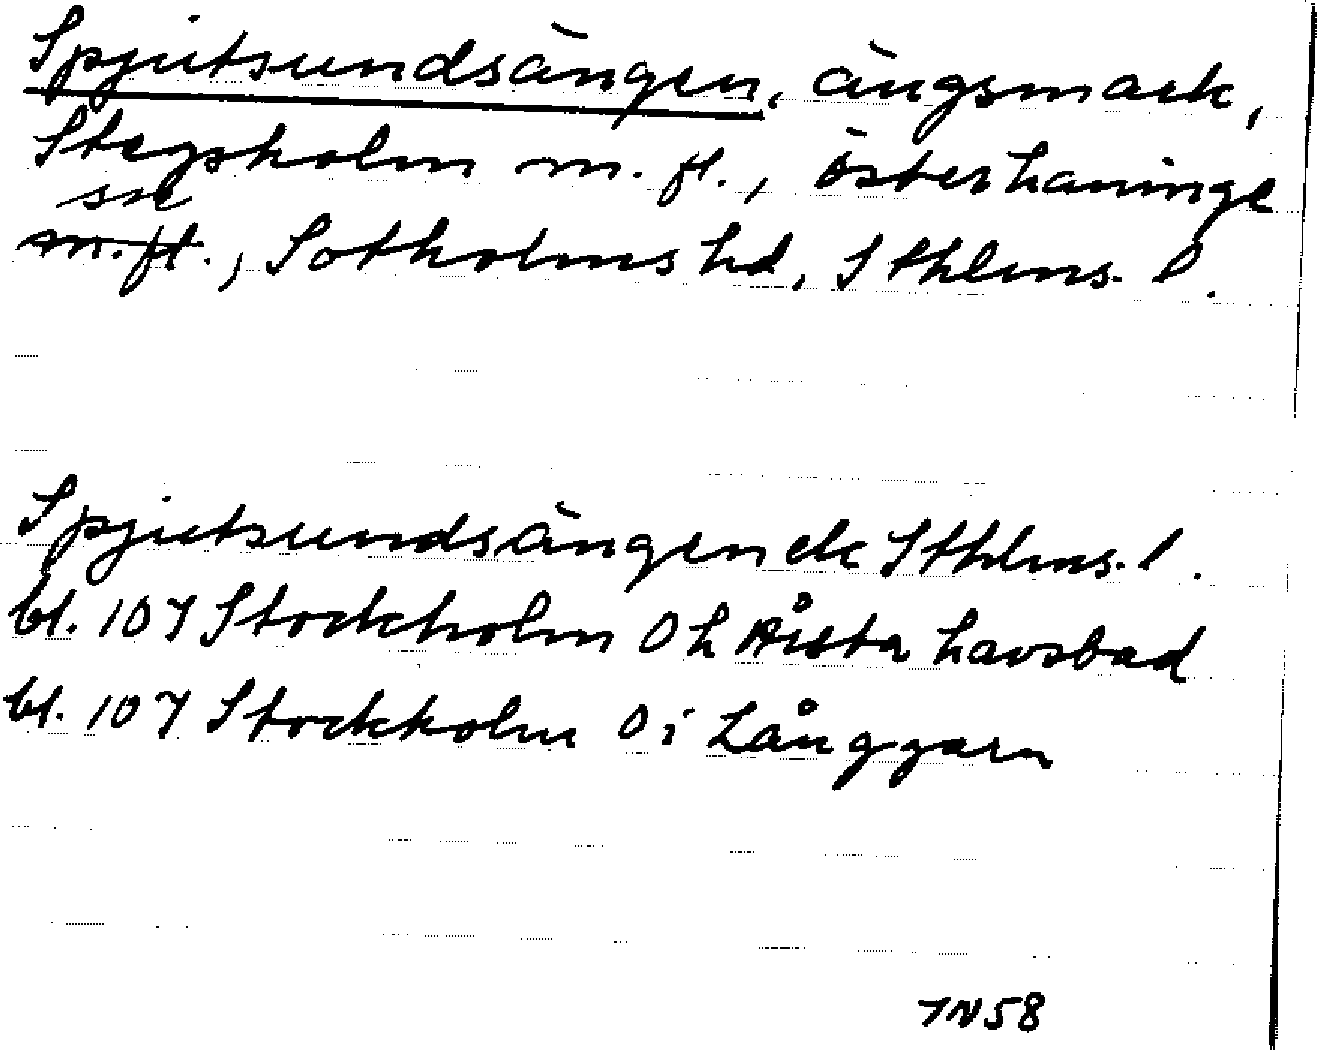 Spjutsundsängen, ängsmark,
Stegsholm m.fl., Österhaninge
sn
m.fl., Sotholms hd, Sthlms. l.
Spjutsundsängen ek Sthlms. l.
bl. 107 Stockholm 0 h Årsta havsbad
bl. 107 Stockholm 0 i Långgarn
TN58